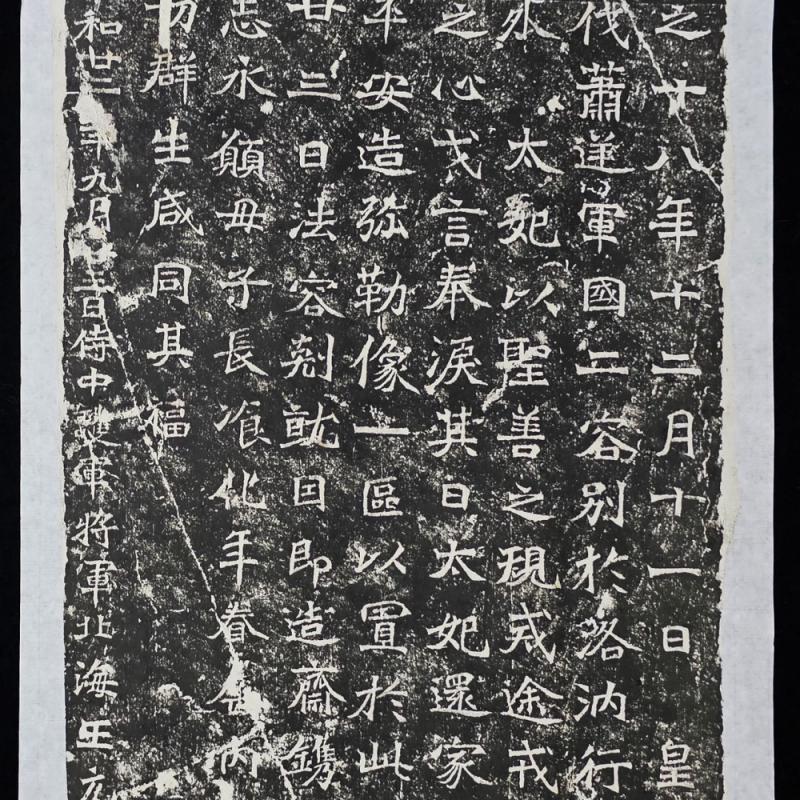 之十八年十二月十一日皇
伐蕭逆軍國二容別於洛汭行
外太妃以聖善之規戒途戒
之心戈言奉淚其日太妃還家
平安造弥勒像一區以置於此
廿三日法容剋就因即造齋鐫
志永願母子長飡化年眷內
切群生咸同其福
和廿二年九月日侍中護軍將軍北海王元